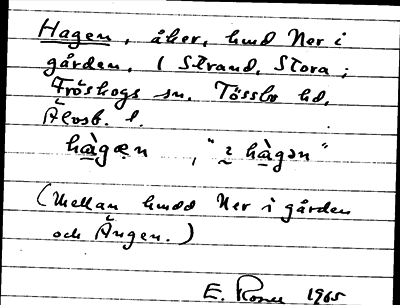 Hagen, åker, hmd Ner i
gården, 1 Strand, Stora;
Fröskogs sn. Tössbo hd,
Älvsb. l.
hàgæn, "i hàgən"
(Mellan hmdd Ner i gården
och Ängen.)
E. Rosen 1965